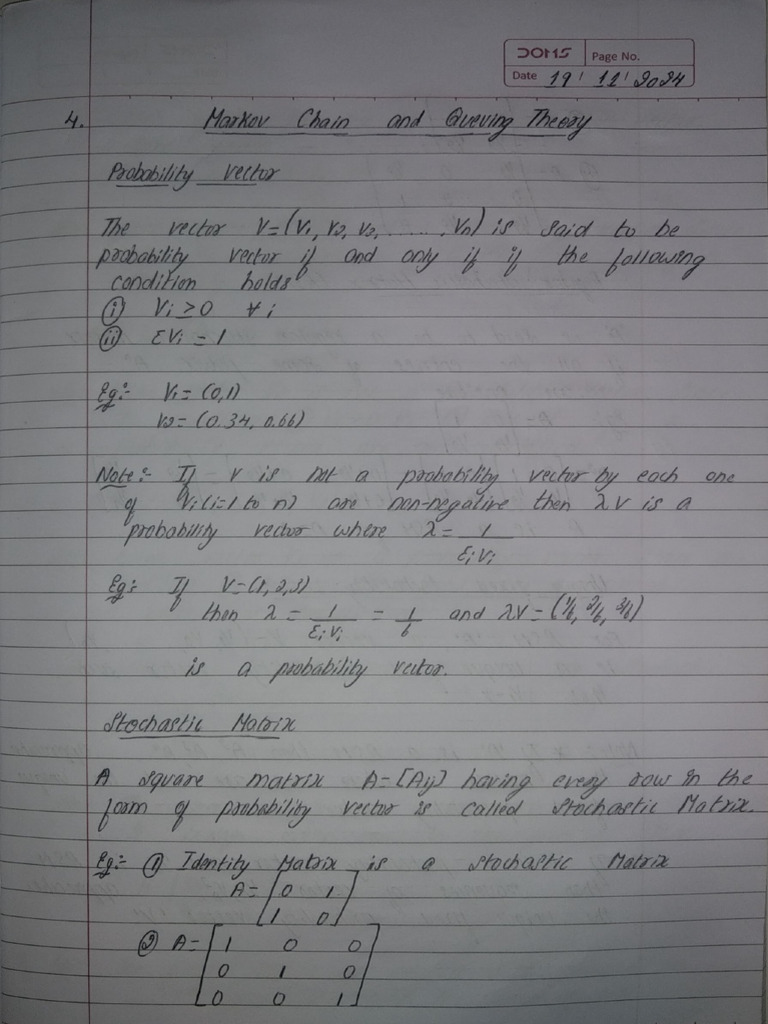 DOMS Page No.
Date 19 / 11 / 2024
4. Markov Chain and Queving Theory
Probability vector
The vector V=(V1, V2, V2, ....... Vn) is said to be
probability vector if and only if if the following
condition holds
(i) Vi ≥0 ∀ i
(ii) ΣVi = 1
Eg:- V1= (0,1)
V2= (0.34, 0.66)
Note:- If V is not a probability vector by each one
of Vi (i=1 to n) are non-negative then λV is a
probability vector where λ= 1/ΣiVi
Eg:- If V=(1,2,3)
then λ = 1/ΣiVi = 1/6 and λV=(1/6, 2/6, 3/6)
is a probability vector.
Stochastic Matrix
A square matrix A=[Aij] having every row in the
form of probability vector is called Stochastic Matrix.
Eg:- (1) Identity Matrix is a Stochastic Matrix
A= [0 1
1 0]
(2) A= [1 0 0
0 1 0
0 0 1]